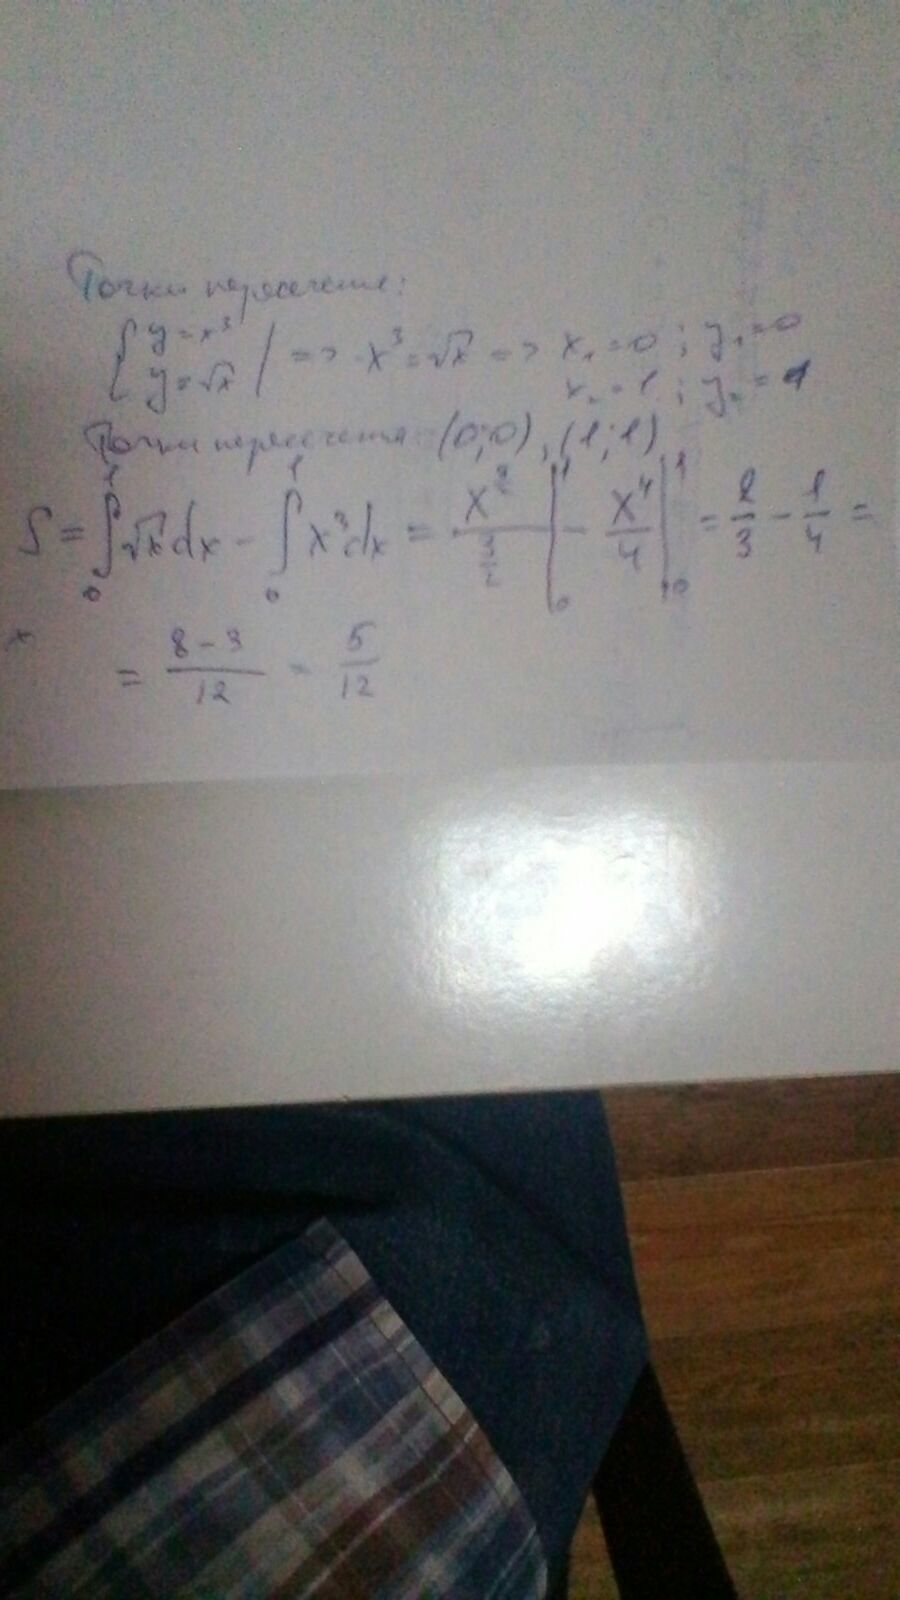 Точки пересечение:
{ y = x³
y = √x | => x³ = √x => x₁ = 0 ; y₁ = 0
x₂ = 1 ; y₂ = 1
Точки пересечения (0;0), (1;1)
S = ∫₀¹ √x dx - ∫₀¹ x³ dx = x^(3/2) / (3/2) |₀¹ - x⁴/4 |₀¹ = 2/3 - 1/4 =
= (8 - 3)/12 = 5/12